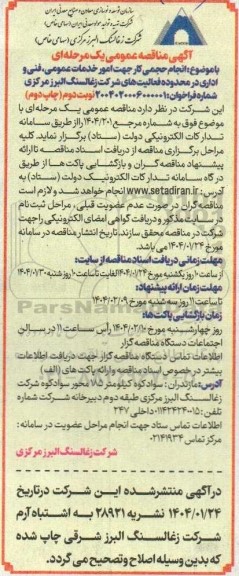 سازمان توسعه و نوسازی معادن و صنایع معدنی ایران
شرکت تهیه و تولید مواد معدنی ایران (سهامی خاص)
شرکت زغالسنگ البرز مرکزی (سهامی خاص)
آگهی مناقصه عمومی یک مرحله‌ای
با موضوع: انجام حجمی کار جهت امور خدمات عمومی، فنی و
اداری در محدوده فعالیت‌های شرکت زغالسنگ البرز مرکزی
شماره فراخوان: نوبت دوم (چاپ دوم)
این شرکت در نظر دارد مناقصه عمومی یک مرحله ای با
موضوع فوق به شماره مرجع ۱۴۰۴/۲۰۱ را از طریق سامانه
تدارکات الکترونیکی دولت (ستاد) برگزار نماید. کلیه
مراحل برگزاری مناقصه از دریافت اسناد مناقصه تا ارائه
پیشنهاد مناقصه گران و بازگشایی پاکت‌ها از طریق
درگاه سامانه تدارکات الکترونیک دولت (ستاد) به
آدرس: www.setadiran.ir انجام خواهد شد و لازم است
مناقصه گران در صورت عدم عضویت قبلی، مراحل ثبت نام
در سایت مذکور و دریافت گواهی امضای الکترونیکی را جهت
شرکت در مناقصه محقق سازند. تاریخ انتشار مناقصه در سامانه
مورخ ۱۴۰۴/۰۱/۲۴ می باشد.
مهلت زمانی دریافت اسناد مناقصه از سایت:
از ساعت ۱۰ روز یکشنبه مورخ ۱۴۰۴/۰۱/۲۴ لغایت تا ساعت ۱۰ روز شنبه ۱۴۰۴/۰۱/۳۰
مهلت زمان ارائه پیشنهاد:
تا ساعت ۱۱ روز سه شنبه مورخ ۱۴۰۴/۰۲/۰۹
زمان بازگشایی پاکت‌ها:
روز چهارشنبه مورخ ۱۴۰۴/۰۲/۱۰ رأس ساعت ۱۱ در سالن
اجتماعات دستگاه مناقصه گزار
اطلاعات تماس دستگاه مناقصه گزار جهت دریافت اطلاعات
بیشتر در خصوص اسناد مناقصه و ارائه پاکت های (الف)
آدرس: مازندران: سوادکوه کیلومتر ۱۸۵ محور سوادکوه شرکت
زغالسنگ البرز مرکزی طبقه دوم دبیرخانه شرکت شماره
تلفن: ۰۱۱۴۲۴۲۴۰۱۵ داخلی ۲۴۷
اطلاعات تماس ستاد جهت انجام مراحل عضویت در سامانه:
مرکز تماس ۰۲۱۴۱۹۳۴
شرکت زغالسنگ البرز مرکزی
در آگهی منتشر شده این شرکت در تاریخ
۱۴۰۴/۰۱/۲۴ نشریه ۲۸۹۲۱ به اشتباه آرم
شرکت زغالسنگ البرز شرقی چاپ شده
که بدین وسیله اصلاح و تصحیح می گردد.